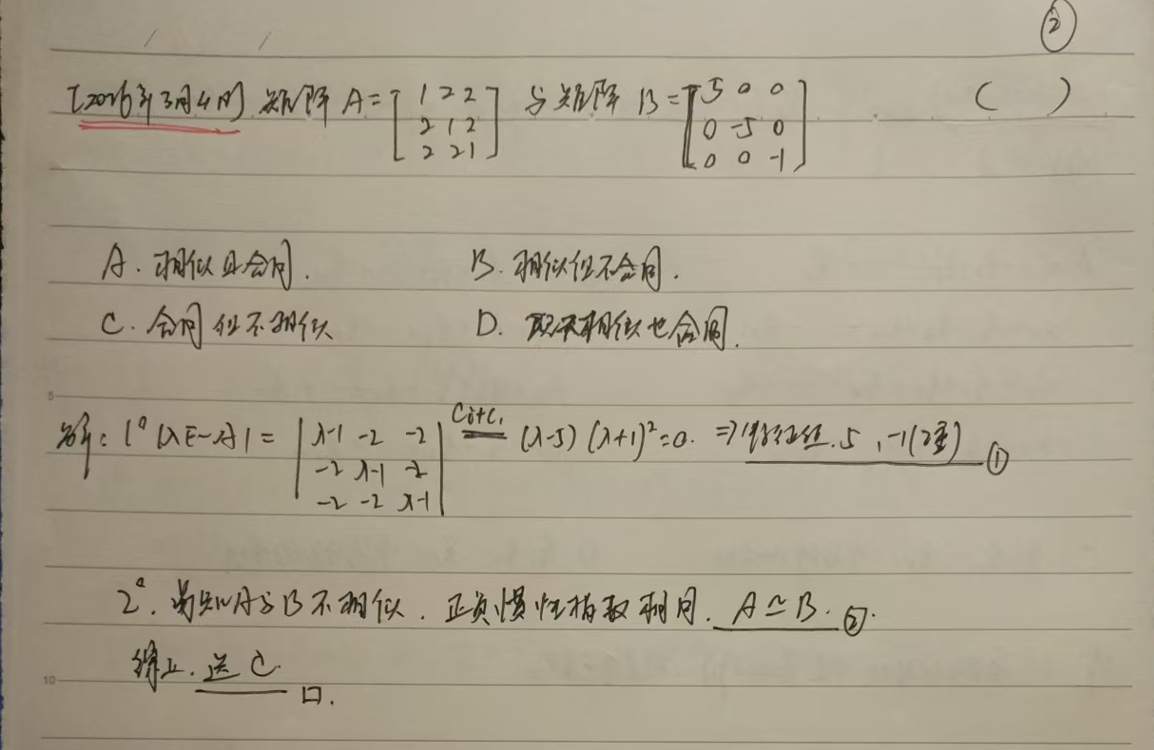 ②
[2026年3月4日] 矩阵 A=[1 2 2 与矩阵 B=[5 0 0 ( )
2 1 2 0 -5 0
2 2 1] 0 0 -1]
A. 相似且合同. B. 相似但不合同.
C. 合同但不相似 D. 既不相似也合同.
解: 1° |λE-A| = | λ-1 -2 -2 C₁+Cᵢ (λ-5)(λ+1)²=0. ⇒特征值. 5 , -1(2重) ①
-2 λ-1 -2
-2 -2 λ-1 |
2°. 易知A与B不相似. 正负惯性指数相同. A≃B. ②.
综上. 选 C. □.
5
10